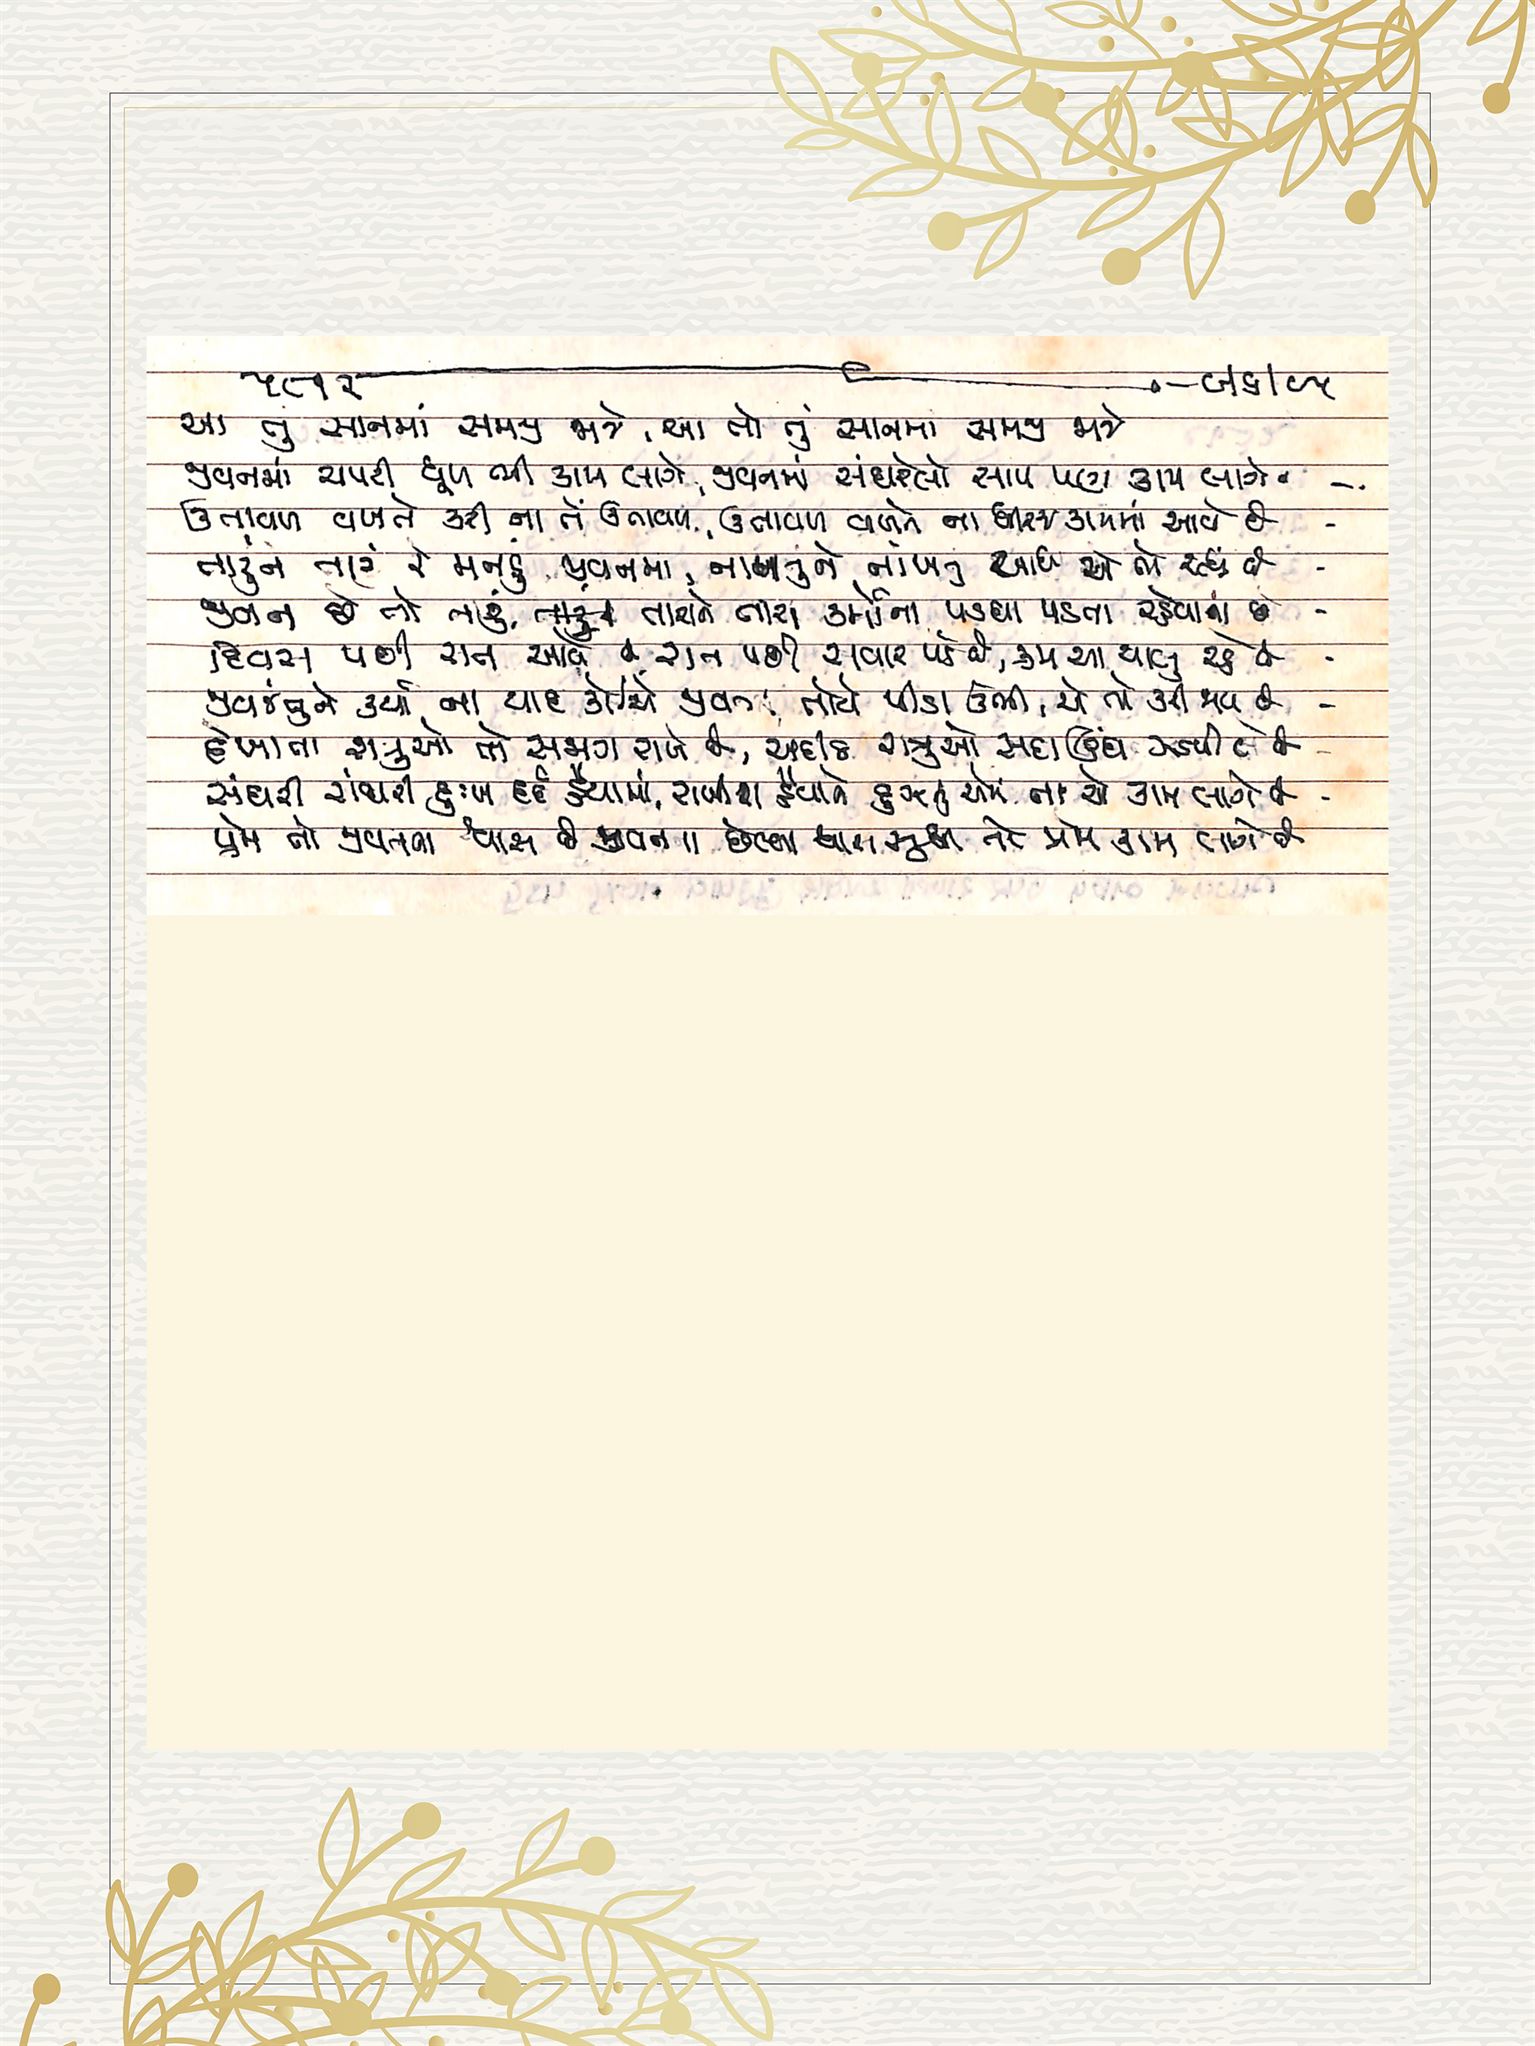 ૫૯૧૨
આ તું સાનમાં સમજી જાજે, આ તો તું સાનમાં સમજી જાજે
જીવનમાં ચપટી ધૂળ ભી કામ લાગે, જીવનમાં સંઘરેલો સાપ પણ કામ લાગે -
ઉતાવળ વખતે કરી ના તેં ઉતાવળ, ઉતાવળ વખતે ના ધીરજ કામમાં આવે છે -
તારુંને તારું રે મનડું જીવનમાં, નાચતુંને નાચતું એ તો રહ્યું છે -
જીવન છે તો તારું, તારાને તારા કર્મોના પડઘા પડતા રહેવાના છે -
દિવસ પછી રાત આવે છે રાત પછી સવાર પડે છે, ક્રમ આ ચાલુ રહે છે -
કર્યા ના યાદ કોઈએ જીવનમાં તોયે પીડા ઊભી, એ તો કરી જાય છે -
દેખાતા શત્રુઓ તો સજાગ રાખે છે, અદીઠ શત્રુઓ સદા ઊંઘ ઝડપી લે છે -
સંઘરી સંઘરી દુઃખ દર્દ હૈયામાં, હૈયાને દુઝતું એમ ના એ કામ લાગે છે -
પ્રેમ તો જીવનના શ્વાસ છે જીવનના છેલ્લા શ્વાસ સુધી તો પ્રેમ કામ લાગે છે